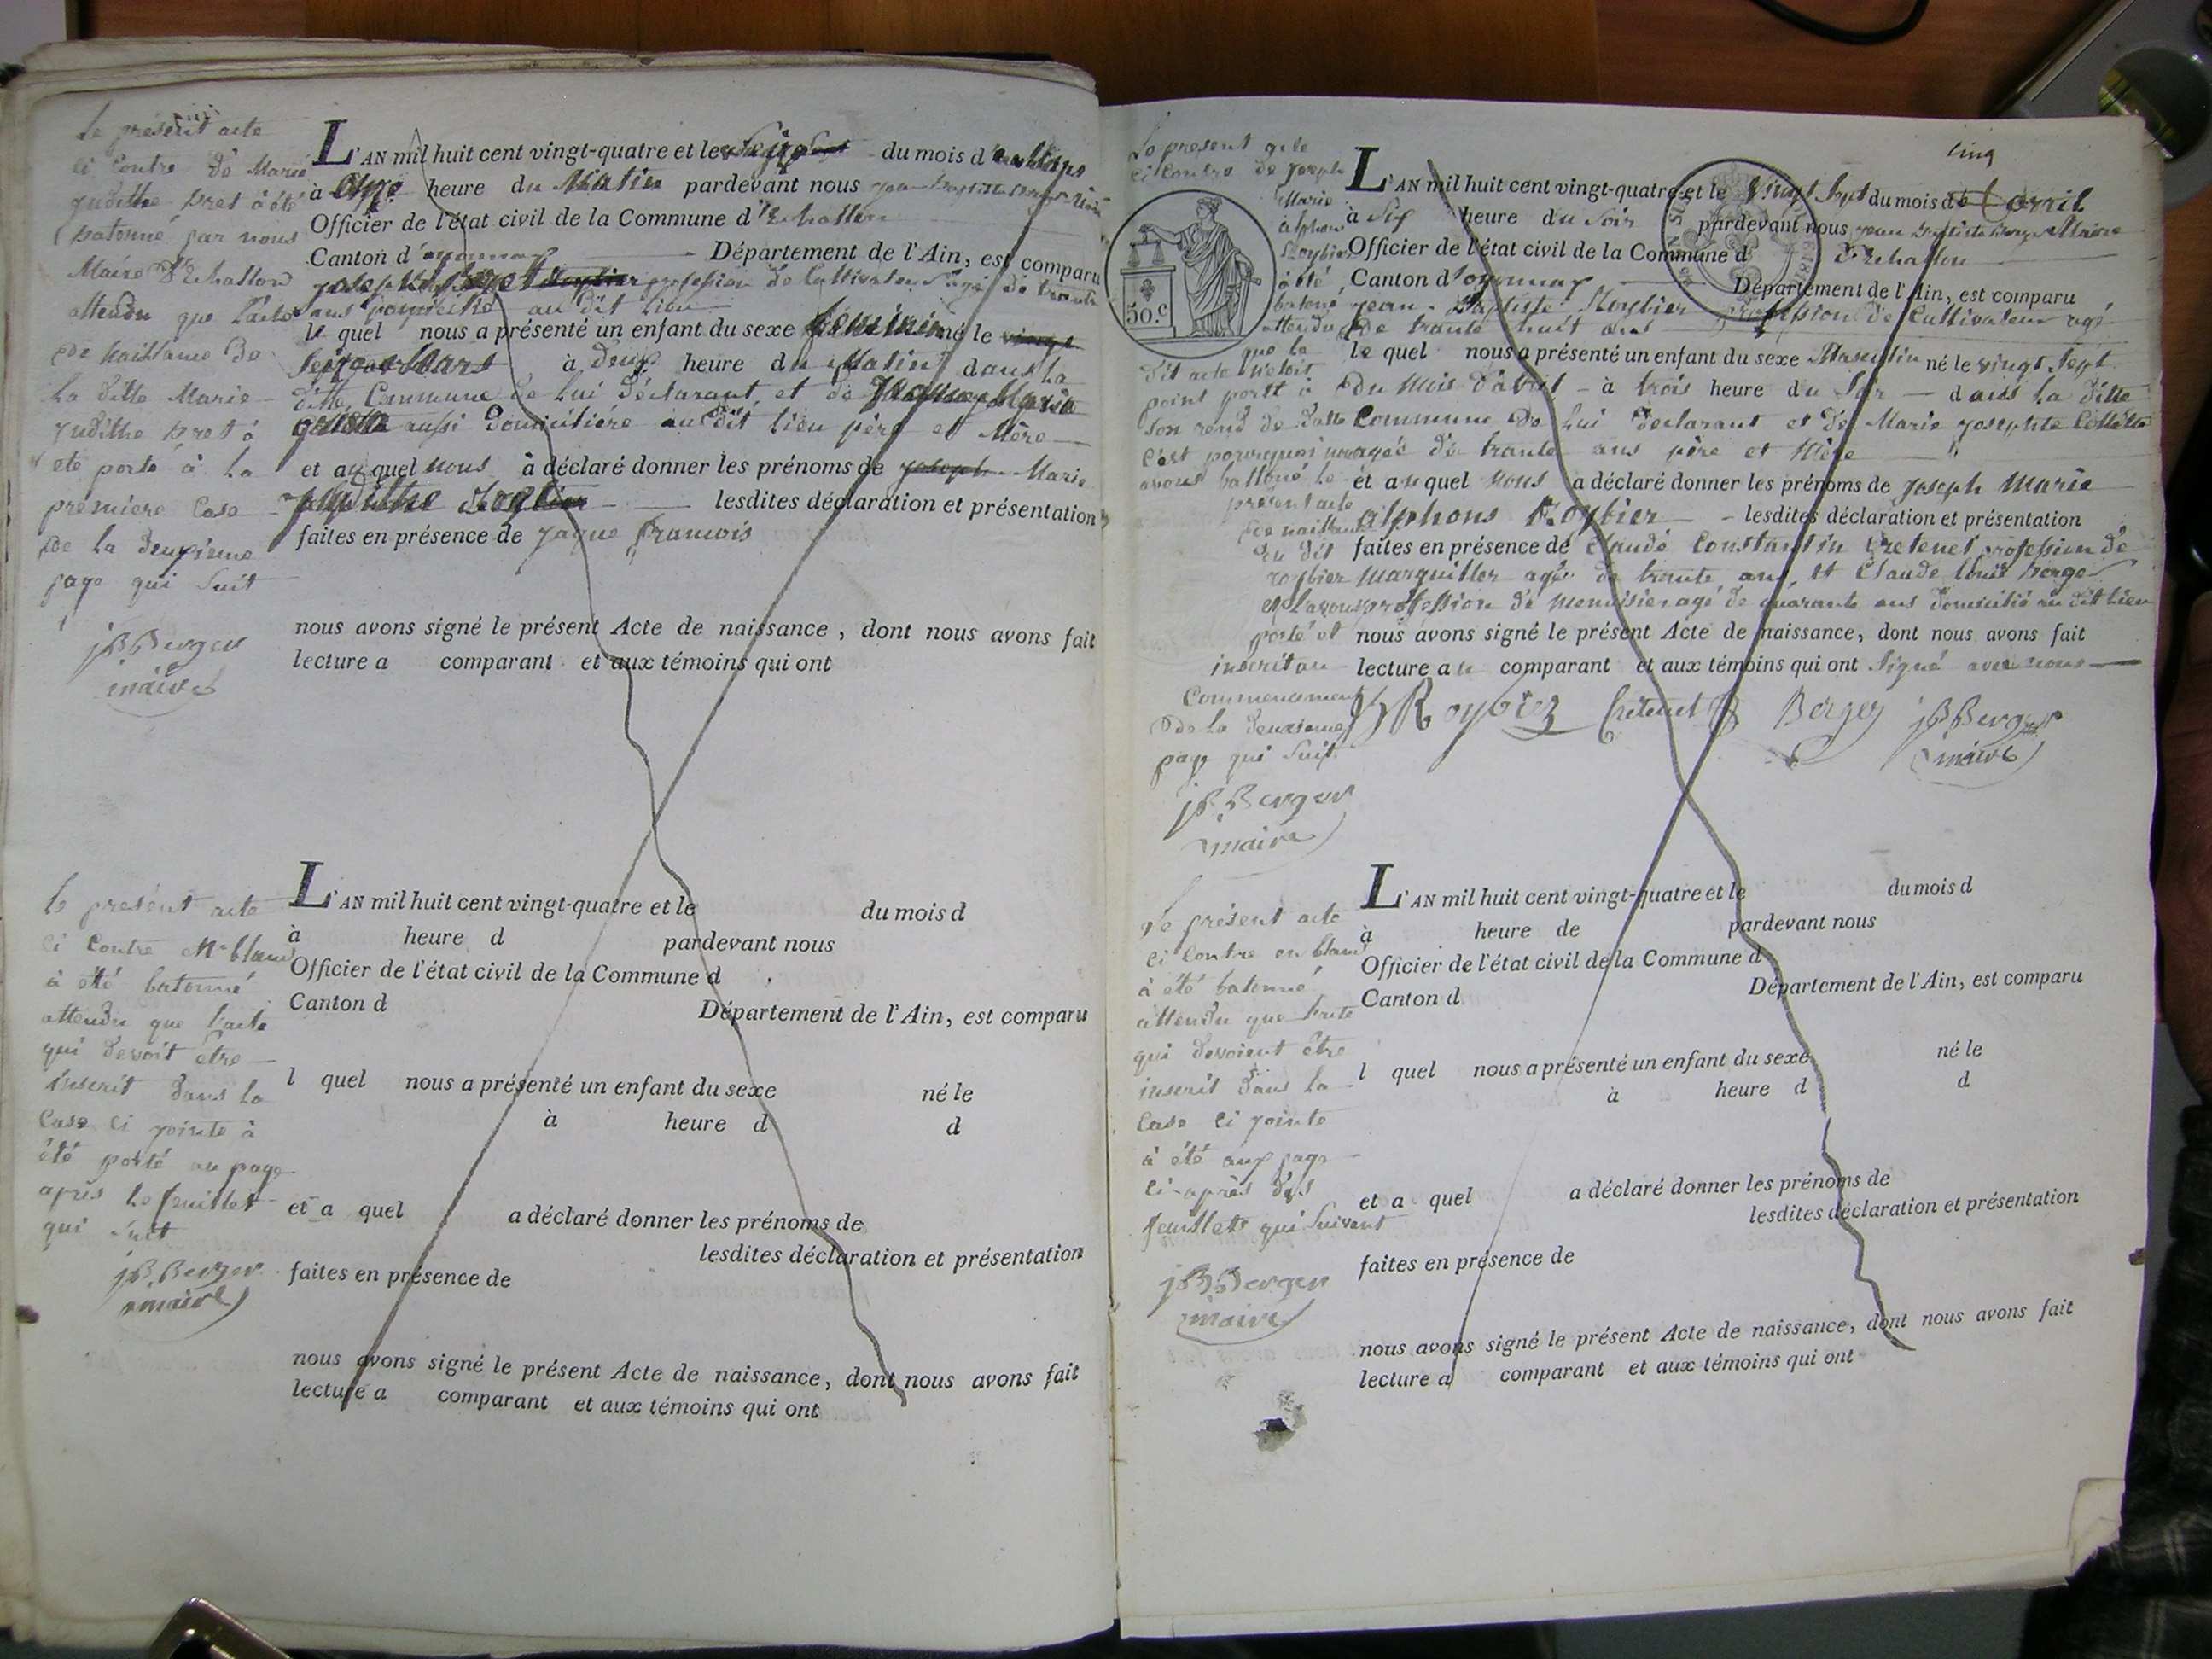 Le présent acte
ci contre de Marie
Judithe Pret à été
batonné par nous
Maire d'Echallon
attendu que l'acte
de naissance de
la ditte Marie
Judithe Pret à
été porté à la
première Case
de la deuxieme
page qui suit
jB Berger
maire
L'AN mil huit cent vingt-quatre et le seize du mois de Mars
à Onze heure du Matin pardevant nous jean Baptiste Berger
Officier de l'état civil de la Commune d'Echallon
Canton d'oyonnax Département de l'Ain, est comparu
joseph Pret profession de Cultivateur agé de trante
ans domicilié au dit lieu
le quel nous a présenté un enfant du sexe feminin né le
seize Mars à deux heure du Matin dans la
ditte Commune de Lui déclarant, et de
aussi Domiciliére au dit lieu père et Mère
et au quel nous à déclaré donner les prénoms de joseph Marie
judithe lesdites déclaration et présentation
faites en présence de jaque francois
nous avons signé le présent Acte de naissance, dont nous avons fait
lecture a comparant et aux témoins qui ont
le présent acte
ci Contre en blanc
à été batonné
attendu que l'acte
qui devoit être
inscrit dans la
Case ci jointe à
été porté au page
après le feuillet
qui suit
jB Berger
maire
L'AN mil huit cent vingt-quatre et le du mois d
à heure d pardevant nous
Officier de l'état civil de la Commune d
Canton d Département de l'Ain, est comparu
l quel nous a présenté un enfant du sexe né le
à heure d d
et a quel a déclaré donner les prénoms de
lesdites déclaration et présentation
faites en présence de
nous avons signé le présent Acte de naissance, dont nous avons fait
lecture a comparant et aux témoins qui ont
cinq
Le présent acte
ci Contre de Joseph
Marie
alphons
Roybier
à été
batoné
attendu
que le
dit acte n'étoit
point porté à
son rend de datte
c'est pourquoi nous
avons battoné le
présent acte
de naissance
du dit
roybier
et l'avons
porté et
inscrit au
Commencement
de la deuxieme
page qui suit.
jB Berger
maire
50.c
L'AN mil huit cent vingt-quatre et le vingt sept du mois d'avril
à six heure du Soir pardevant nous jean Baptiste Berger Maire
Officier de l'état civil de la Commune d'Echallon
Canton d'oyonnax Département de l'Ain, est comparu
jean-Baptiste Roybier profession de Cultivateur agé
de trante huit ans
le quel nous a présenté un enfant du sexe Masculin né le vingt sept
du mois d'abril à trois heure du Soir dans la ditte
Commune de Lui déclarant et de Marie josephte Collette
agée de trante ans père et Mère
et au quel nous a déclaré donner les prénoms de joseph marie
alphons Roybier lesdites déclaration et présentation
faites en présence de Claude Constantin Cretenet profession de
Marguiller agé de trante ans, et Claude louis berger
profession de menuisier agé de quarante ans domicilié au dit lieu
nous avons signé le présent Acte de naissance, dont nous avons fait
lecture au comparant et aux témoins qui ont signé avec nous
Roybier Cretenet Berger jB Berger
maire
Le présent acte
ci Contre en blanc
à été batonné
attendu que
qui devoient être
inscrit dans la
Case ci jointe
à été aux page
ci-après des
feuillets qui suivent
jB Berger
maire
L'AN mil huit cent vingt-quatre et le du mois d
à heure de pardevant nous
Officier de l'état civil de la Commune d
Canton d Département de l'Ain, est comparu
l quel nous a présenté un enfant du sexe né le
à heure d d
et a quel a déclaré donner les prénoms de
lesdites déclaration et présentation
faites en présence de
nous avons signé le présent Acte de naissance, dont nous avons fait
lecture a comparant et aux témoins qui ont